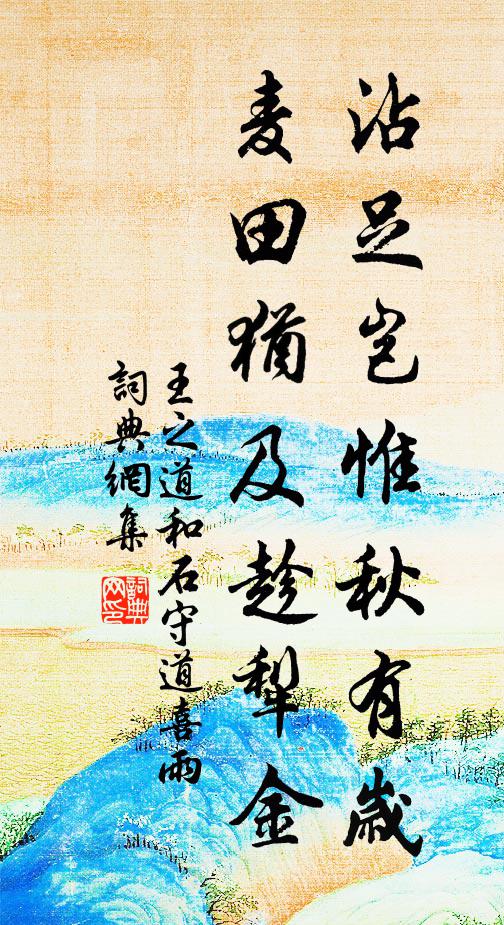 沾足岂惟秋有歲
麦田猶及趁犁金
王之道和石守道喜雨
詞典網集
詞典网印